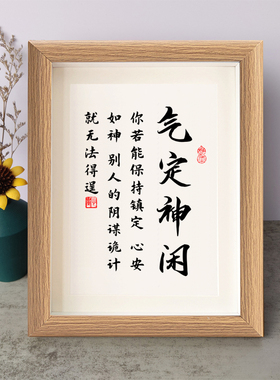 气定神闲
你若能保持镇定 心安
如神 别人的阴谋诡计
就无法得逞